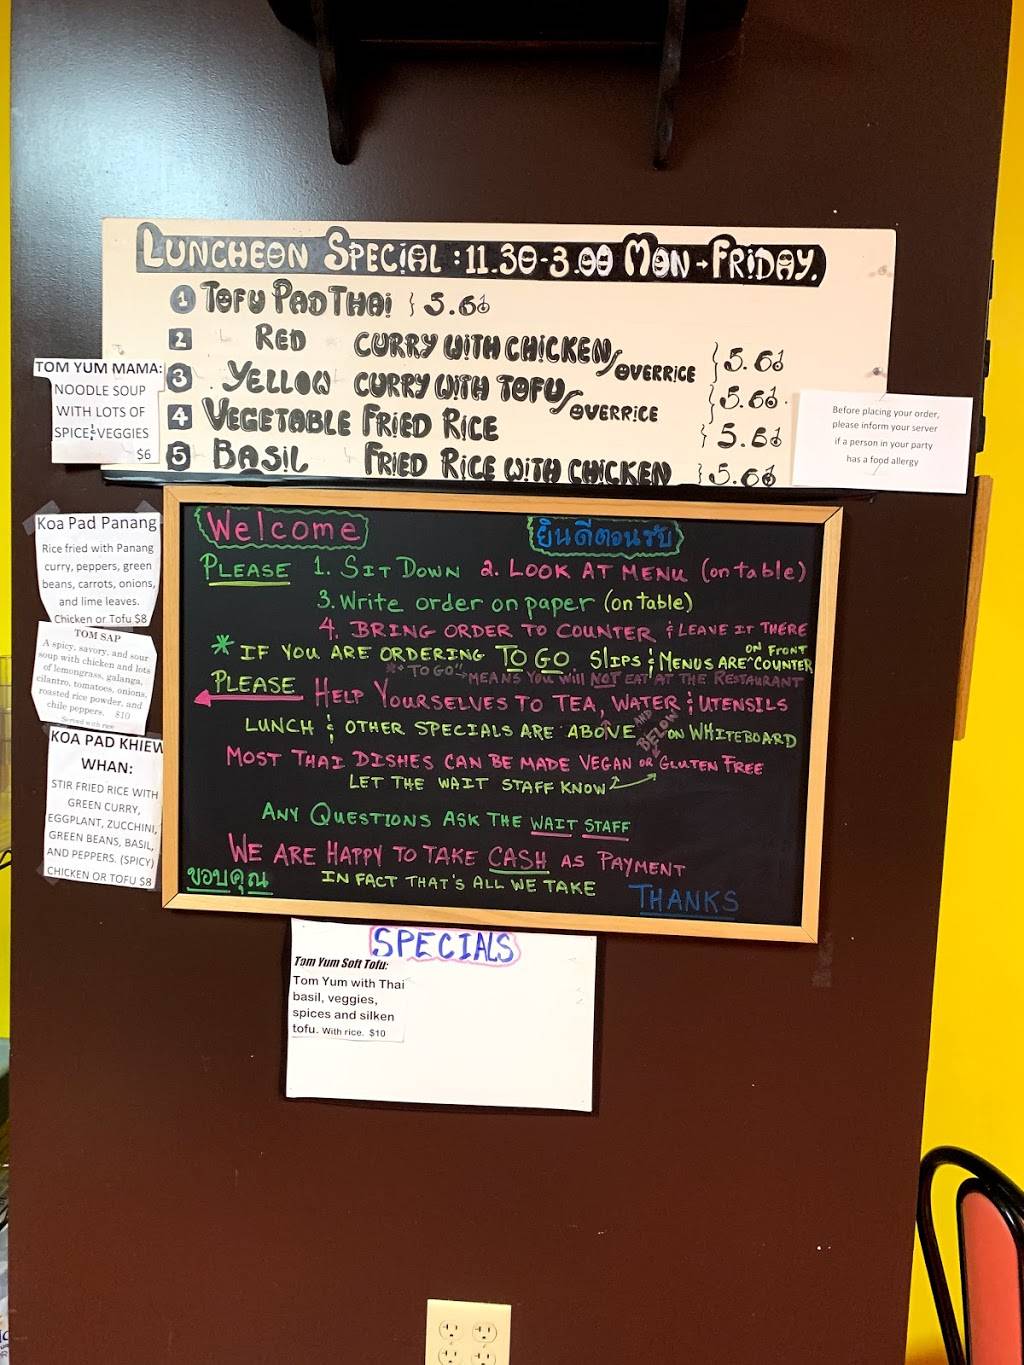 LUNCHEON SPECIAL : 11.30-3.00 MON - FRIDAY.
1 TOFU PAD THAI } 5.60
2 RED CURRY WITH CHICKEN / OVER RICE } 5.60
3 YELLOW CURRY WITH TOFU / OVER RICE } 5.60.
4 VEGETABLE FRIED RICE } 5.60
5 BASIL FRIED RICE WITH CHICKEN } 5.60
TOM YUM MAMA:
NOODLE SOUP
WITH LOTS OF
SPICE & VEGGIES
$6
Before placing your order,
please inform your server
if a person in your party
has a food allergy
Koa Pad Panang
Rice fried with Panang
curry, peppers, green
beans, carrots, onions,
and lime leaves.
Chicken or Tofu $8
TOM SAP
A spicy, savory, and sour
soup with chicken and lots
of lemongrass, galanga,
cilantro, tomatoes, onions,
roasted rice powder, and
chile peppers. $10
Served with rice
KOA PAD KHIEW
WHAN:
STIR FRIED RICE WITH
GREEN CURRY,
EGGPLANT, ZUCCHINI,
GREEN BEANS, BASIL,
AND PEPPERS. (SPICY)
CHICKEN OR TOFU $8
Welcome ยินดีตอนรับ
PLEASE 1. SIT DOWN 2. LOOK AT MENU (on table)
3. Write order on paper (on table)
4. BRING ORDER TO COUNTER & LEAVE IT THERE
* IF YOU ARE ORDERING TO GO, SLIPS & MENUS ARE ^ON FRONT COUNTER
* "TO GO" MEANS YOU WILL NOT EAT AT THE RESTAURANT
PLEASE HELP YOURSELVES TO TEA, WATER & UTENSILS
LUNCH & OTHER SPECIALS ARE ABOVE AND BELOW ON WHITEBOARD
MOST THAI DISHES CAN BE MADE VEGAN OR GLUTEN FREE
LET THE WAIT STAFF KNOW
ANY QUESTIONS ASK THE WAIT STAFF
WE ARE HAPPY TO TAKE CASH AS PAYMENT
ขอบคุณ IN FACT THAT'S ALL WE TAKE THANKS
SPECIALS
Tom Yum Soft Tofu:
Tom Yum with Thai
basil, veggies,
spices and silken
tofu. With rice. $10